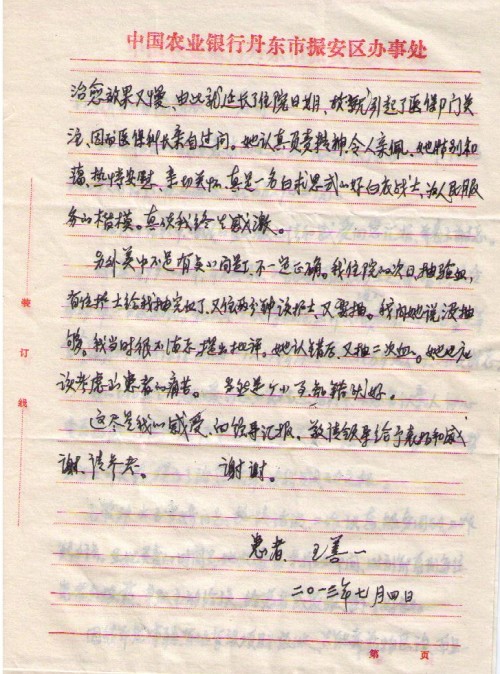 中国农业银行丹东市振安区办事处
治愈效果又慢、由此就延长了住院日期、故就引起了医保部门关
注、因而医保科长亲自过问。她认真负责精神令人亲佩。她特别和
蔼、热情安慰、亲切关怀、真是一名白求恩式的好白衣战士、为人民服
务的楷模。真使我终生感激。
另外美中不足有点小问题、不一定正确。我住院的次日、抽验血、
有位护士给我抽完血了、又住两分钟该护士、又要抽。我问她说没抽
够。我当时很不满意、提出批评。她认错后、又抽二次血。她也应
该考虑的患者的痛苦。当然是个小事知错就好。
这尽是我的感受、向领导汇报。敬请领导给予表扬和感
谢、请参考。 谢谢。
患者、王善一
二〇一三年七月四日
装
订
线
第 页